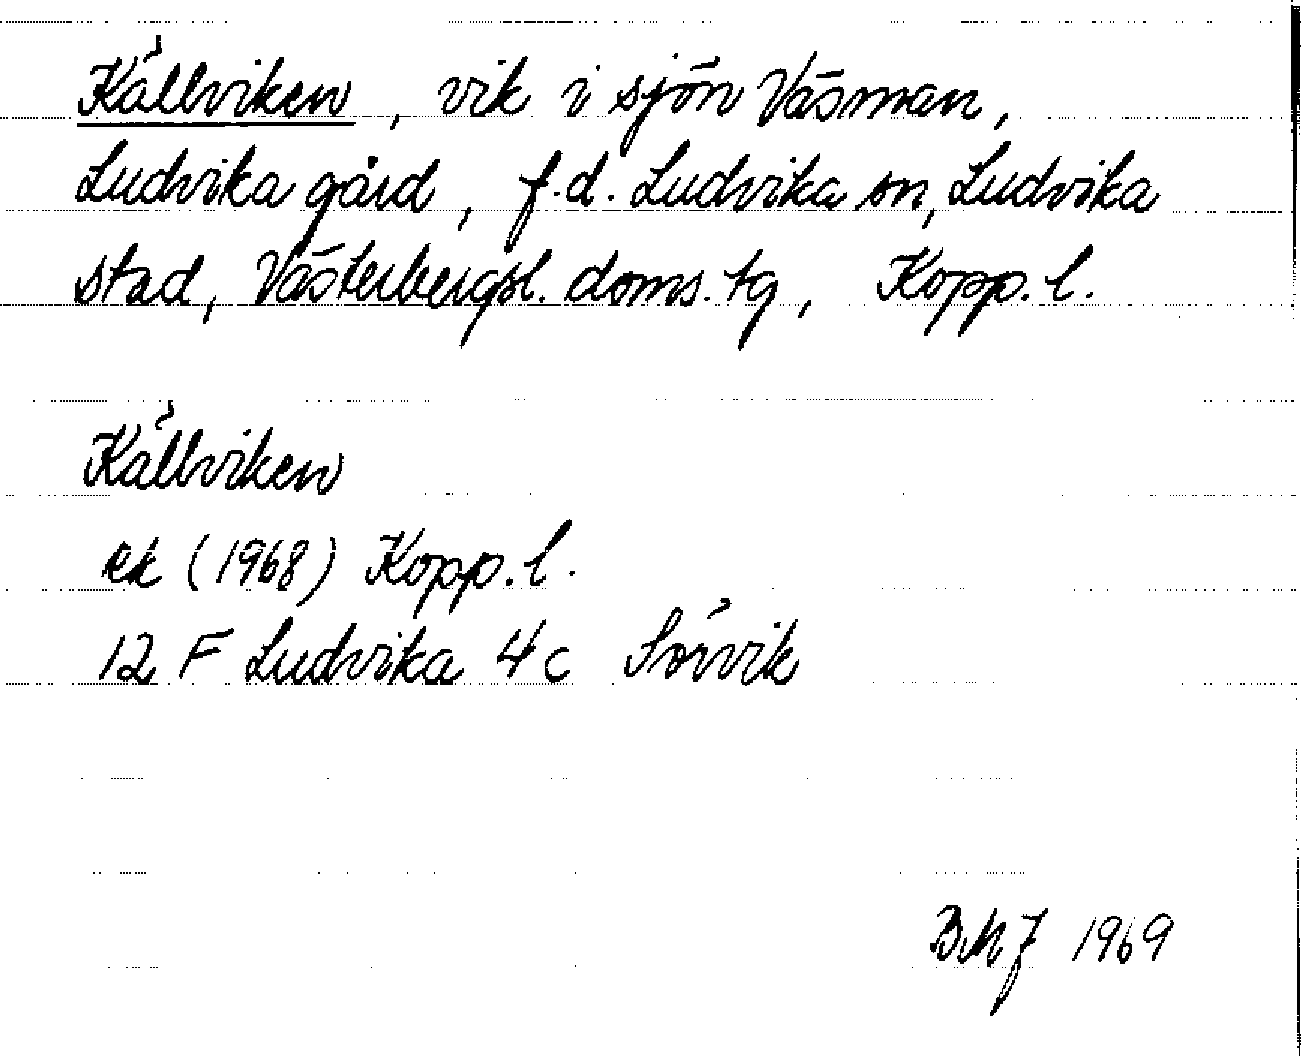 Källviken, vik i sjön Väsman,
Ludvika gård, f.d. Ludvika sn, Ludvika
stad, Västerbergsl. doms. tg, Kopp. l.
Källviken
ek (1968) Kopp. l.
12 F Ludvika 4 c Sörvik
BMJ 1969